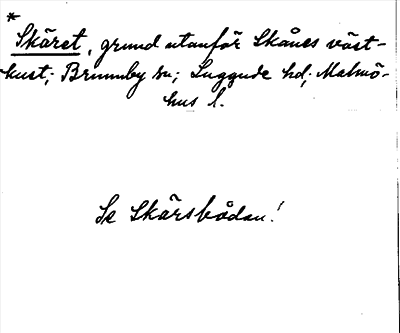 *
Skäret, grund utanför Skånes väst-
kust; Brunnby sn; Luggude hd; Malmö-
hus l.
Se Skärsbådan!